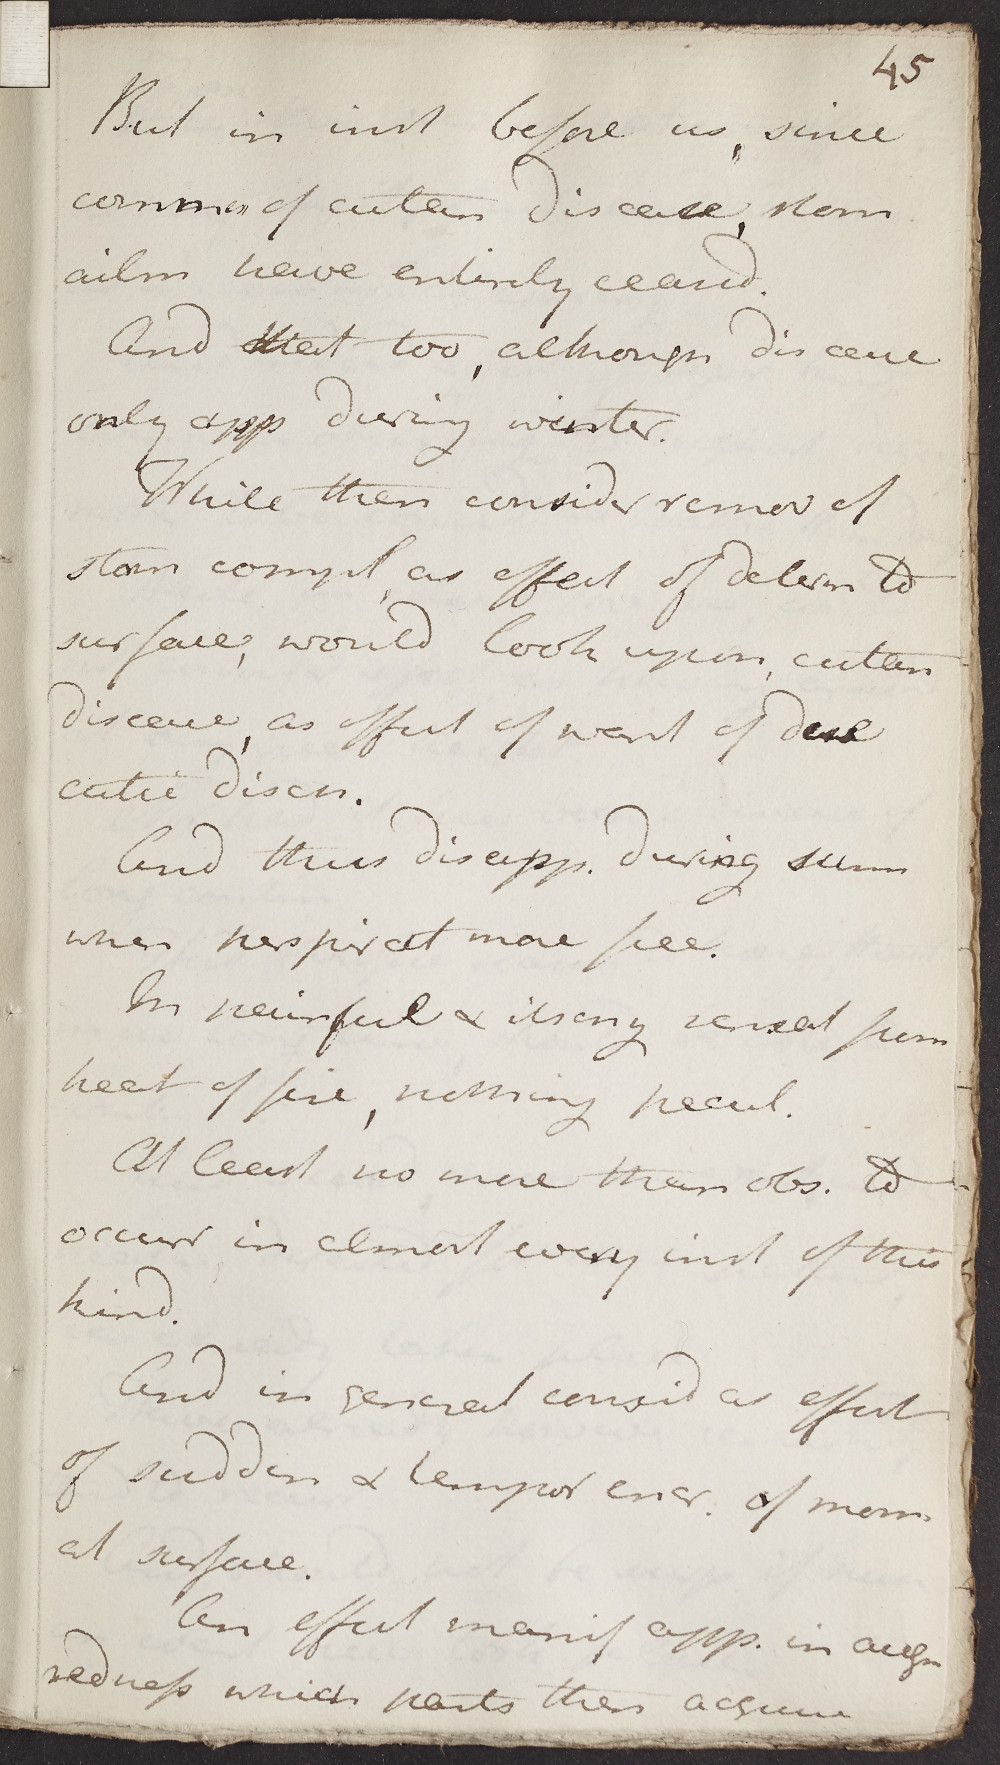 45
But in inst before us, since
comm of cutan disease, stom
ailm have entirely ceasd.
And that too, although disease
only app during winter.
While then consider remov of
stom compl, as effect of determ to
surface, would look upon, cutan
disease, as effect of want of due
cutic disch.
And thus disapp. during summ
when perspirat more free.
In painful & itching sensat from
heat of fire, nothing pecul.
At least no more than obs. to
occurr in almost every inst of this
kind.
And in general consid as effect
of sudden & tempor encr. of mom
at surface.
An effect manif app. in augm
redness which parts then acquire